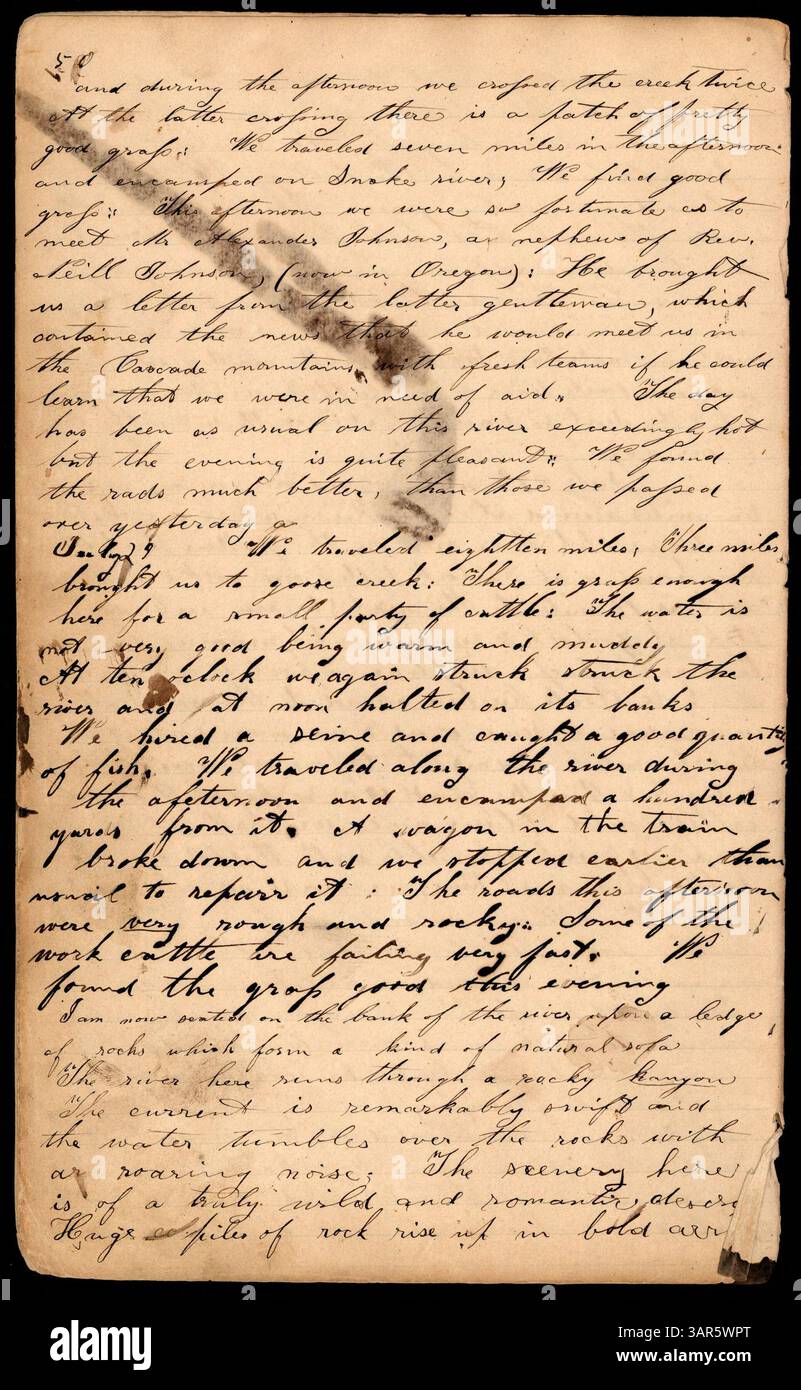 50
and during the afternoon we crossed the creek twice
At the latter crossing there is a patch of pretty
good grass: We traveled seven miles in the afternoon
and encamped on Snake river; We find good
grass: This afternoon we were so fortunate as to
meet Mr Alexander Johnson, a nephew of Rev.
Neill Johnson, (now in Oregon): He brought
us a letter from the latter gentleman, which
contained the news that he would meet us in
the Cascade mountains with fresh teams if he could
learn that we were in need of aid. The day
has been as usual on this river exceedingly hot
but the evening is quite pleasant: We found
the rads much better, than those we passed
over yesterday
July 29 We traveled eightten miles; Three miles
brought us to goose creek: There is grass enough
here for a small party of cattle: The water is
not very good being warm and muddy
At ten oclock we again struck struck the
river and at noon halted on its banks
We hired a seine and caught a good quantity
of fish. We traveled along the river during
the afeternoon and encamped a hundred
yards from it. A wagon in the train
broke down and we stopped earlier than
usual to repair it: The roads this afternoon
were very rough and rocky: Some of the
work cattle are failing very fast. We
found the grass good this evening
I am now seated on the bank of the river upon a ledge
of rocks which form a kind of natural sofa
The river here runs through a rocky kanyon
The current is remarkably swift and
the water tumbles over the rocks with
a roaring noise; The scenery here
is of a truly wild and romantic descri
Huge piles of rock rise up in bold arr
alamy
alamy
Image ID: 3AR5WPT
www.alamy.com